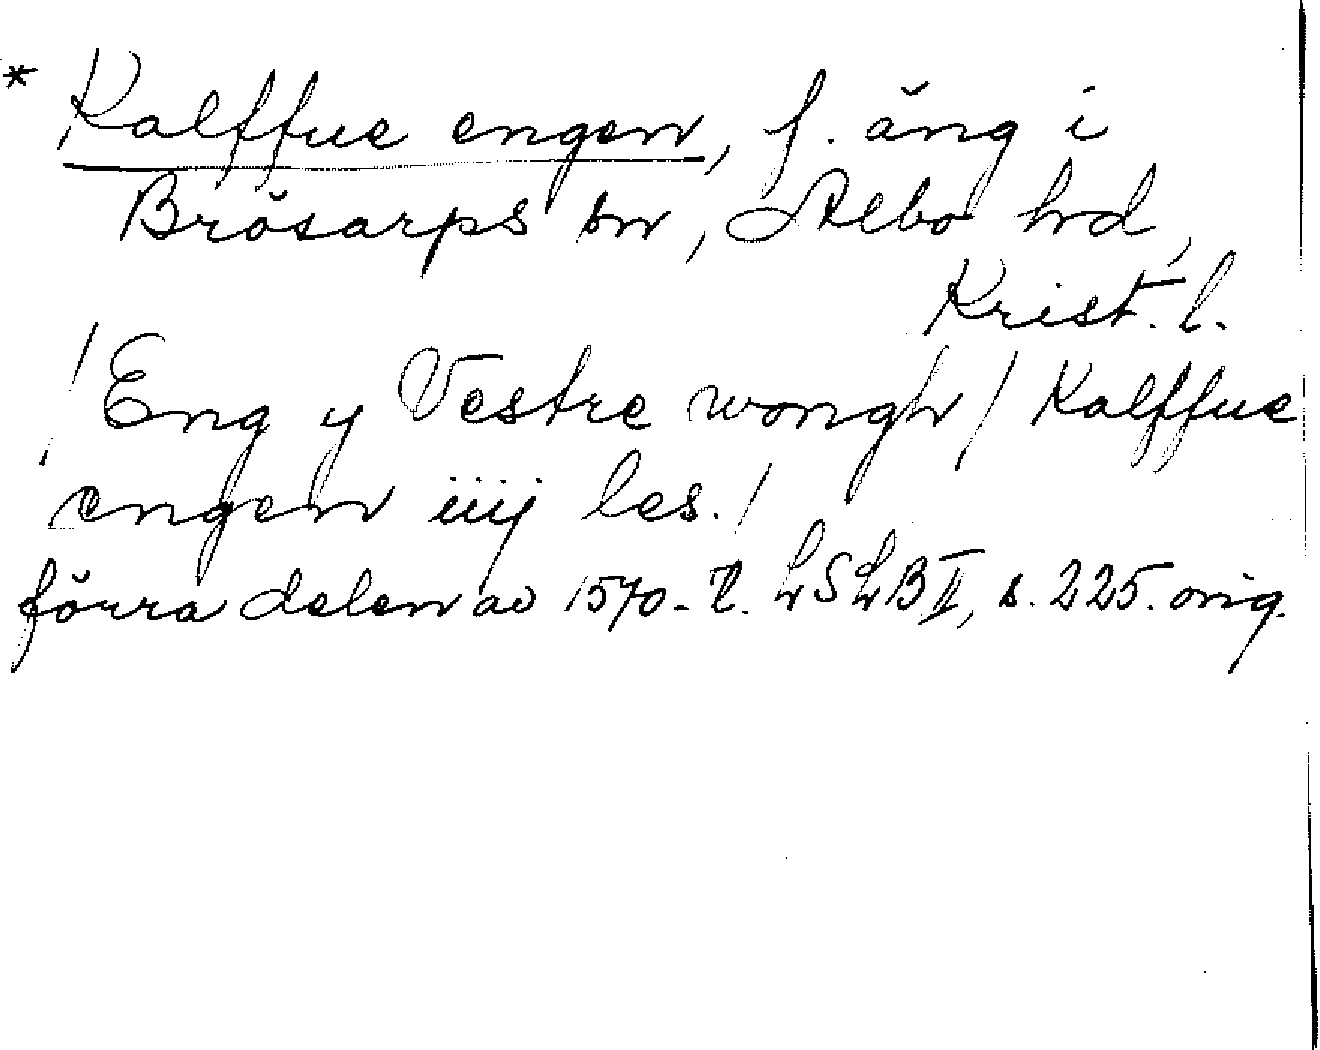 * Kalffue engen, f. äng i
Brösarps sn, Albo hd,
Krist. l.
/Eng y Vestre wongh/ Kalffue
engen iiij les./
förra delen av 1570-t. LSLB II, s. 225. orig.